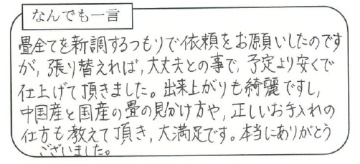 なんでも一言
畳全てを新調するつもりで依頼をお願いしたのです
が，張り替えれば，大丈夫との事で，予定より安くで
仕上げて頂きました。出来上がりも綺麗ですし，
中国産と国産の畳の見分け方や，正しいお手入れの
仕方も教えて頂き，大満足です。本当にありがとう
ございました。